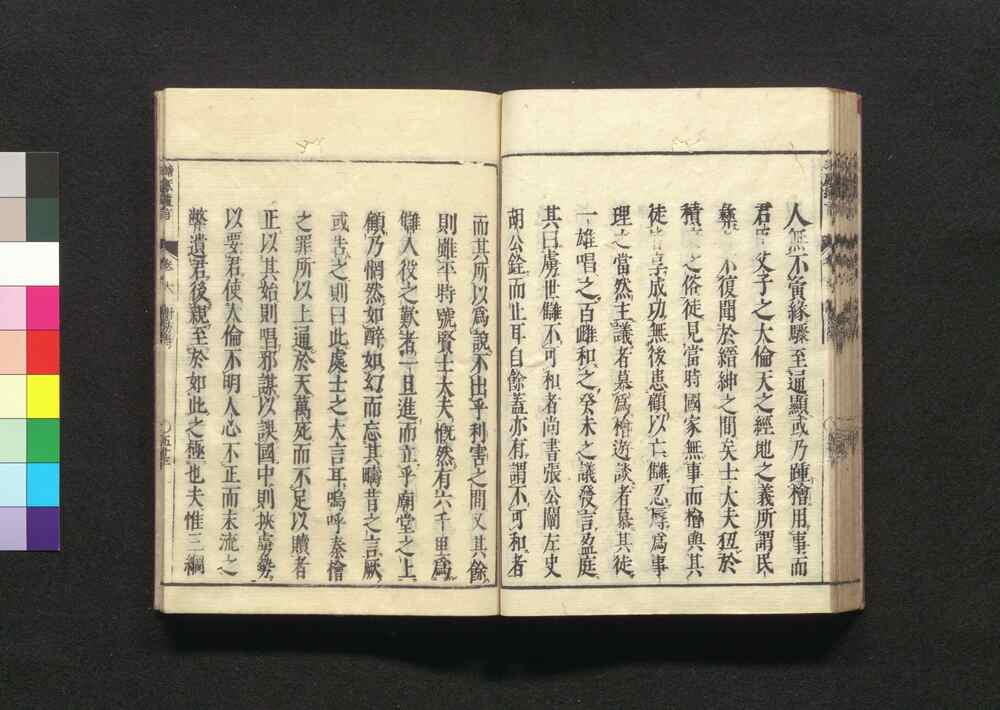 人無不夤緣驟至通顯或乃踵檜用事而
君臣父子之大倫天之經地之義所謂民
彝不復聞於縉紳之間矣士大夫狃於
積之俗徒見當時國家無事而檜與其
徒皆享成功無後患顧以亡讎忍辱爲事
理之當然主議者慕爲檜遊談者慕其徒
一雄唱之百雌和之癸未之議發言盈庭
其曰虜世讎不可和者尚書張公闡左史
胡公銓而止耳自餘蓋亦有謂不可和者
而其所以爲說不出乎利害之間又其餘
則雖平時號賢士大夫慨然有六千里爲
讎人役之歎者一旦進而立乎廟堂之上
顧乃惘然如醉如幻而忘其疇昔之言厥
或告之則曰此處士之大言耳嗚呼秦檜
之罪所以上通於天萬死而不足以贖者
正以其始則唱邪謀以誤國中則挾虜勢
以要君使人倫不明人心不正而末流之
弊遺君後親至於如此之極也夫惟三綱